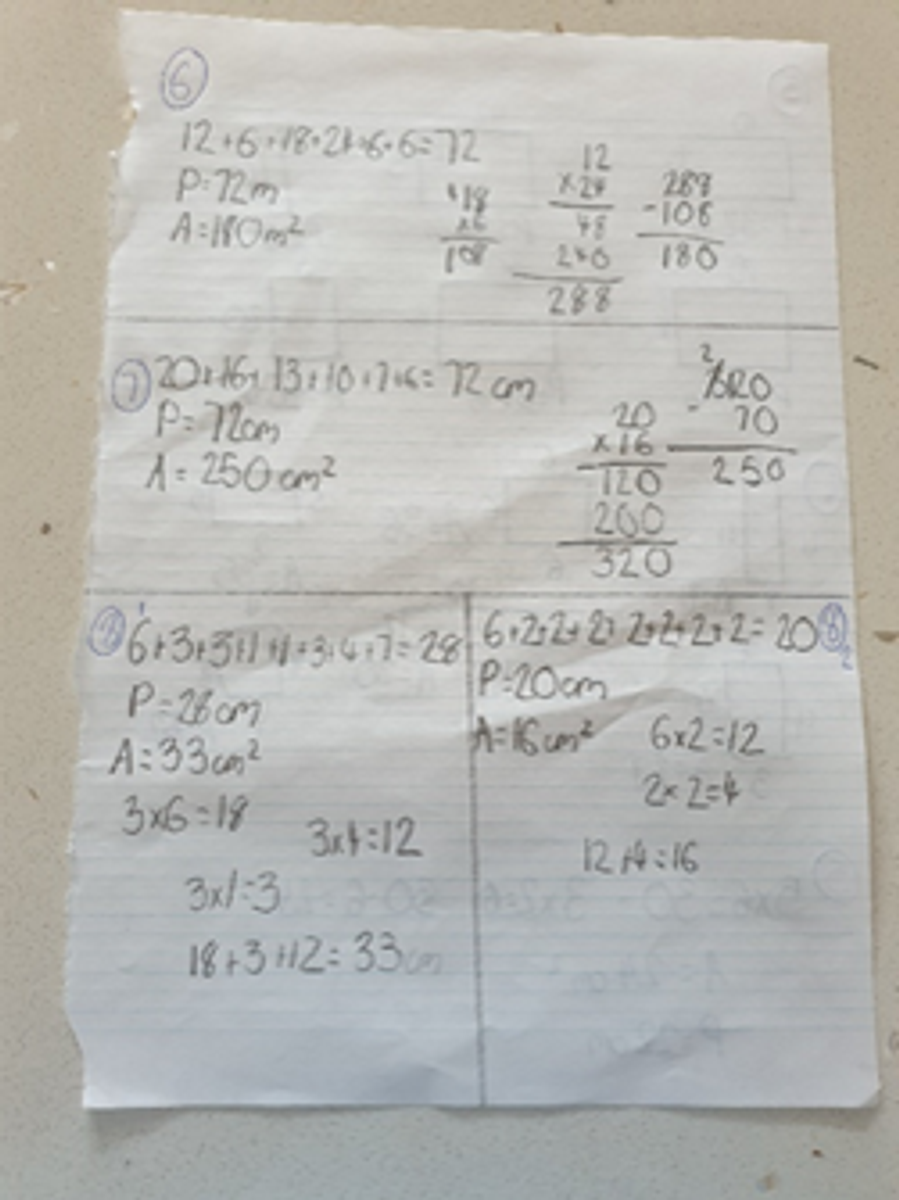 6
12+6+18+24+6+6=72
P=72m
A=180m²
18
x6
108
12
x24
48
240
288
288
-108
180
7
20+16+13+10+7+6=72cm
P=72cm
A=250cm²
20
x16
120
200
320
2
320
- 70
250
6+3+3+1+1+3+4+7=28
P=28cm
A=33cm²
3x6=18
3x4=12
3x1=3
18+3+12=33cm
6+2+2+2+2+2+2+2=20
P=20cm
A=16cm²
6x2=12
2x2=4
12+4=16